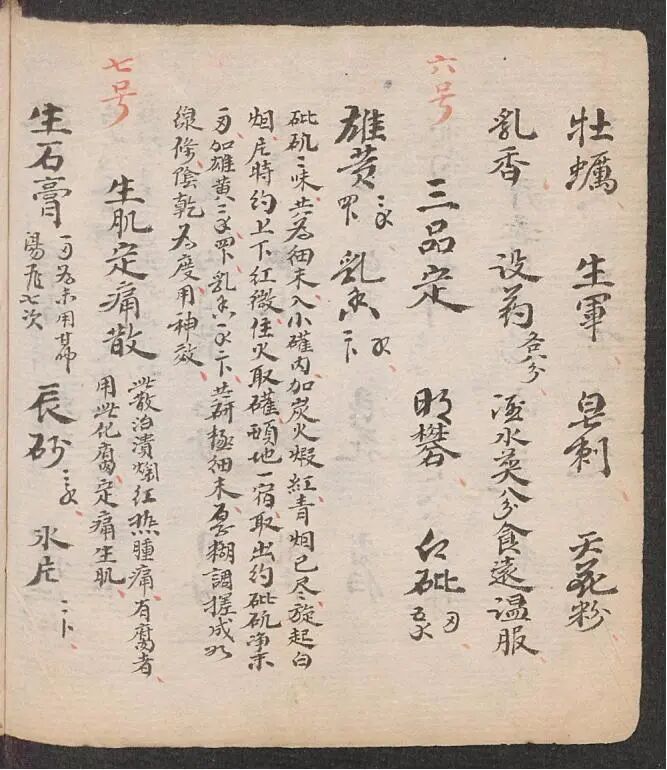 牡蠣 生軍 皂刺 天花粉
乳香 设药 各八分 酒水煎八分食遠溫服
六号
三品定 明礬 白砒
雄黄 乳香
砒矾二味共為细末入小礶內加炭火煅紅青烟已尽旋起白
烟片時約上下紅徹住火取礶頓地一宿取出約砒矾净末
刃加雄黄二戋四卜乳香一戋二卜共研極细末厚糊調搓成如
線條陰乾為度用神效
七号
生肌定痛散 此散治潰爛红热腫痛有腐者
用此化腐定痛生肌
生石膏 為末用甘草
湯飛七次 辰砂 三戋 氷片 二卜